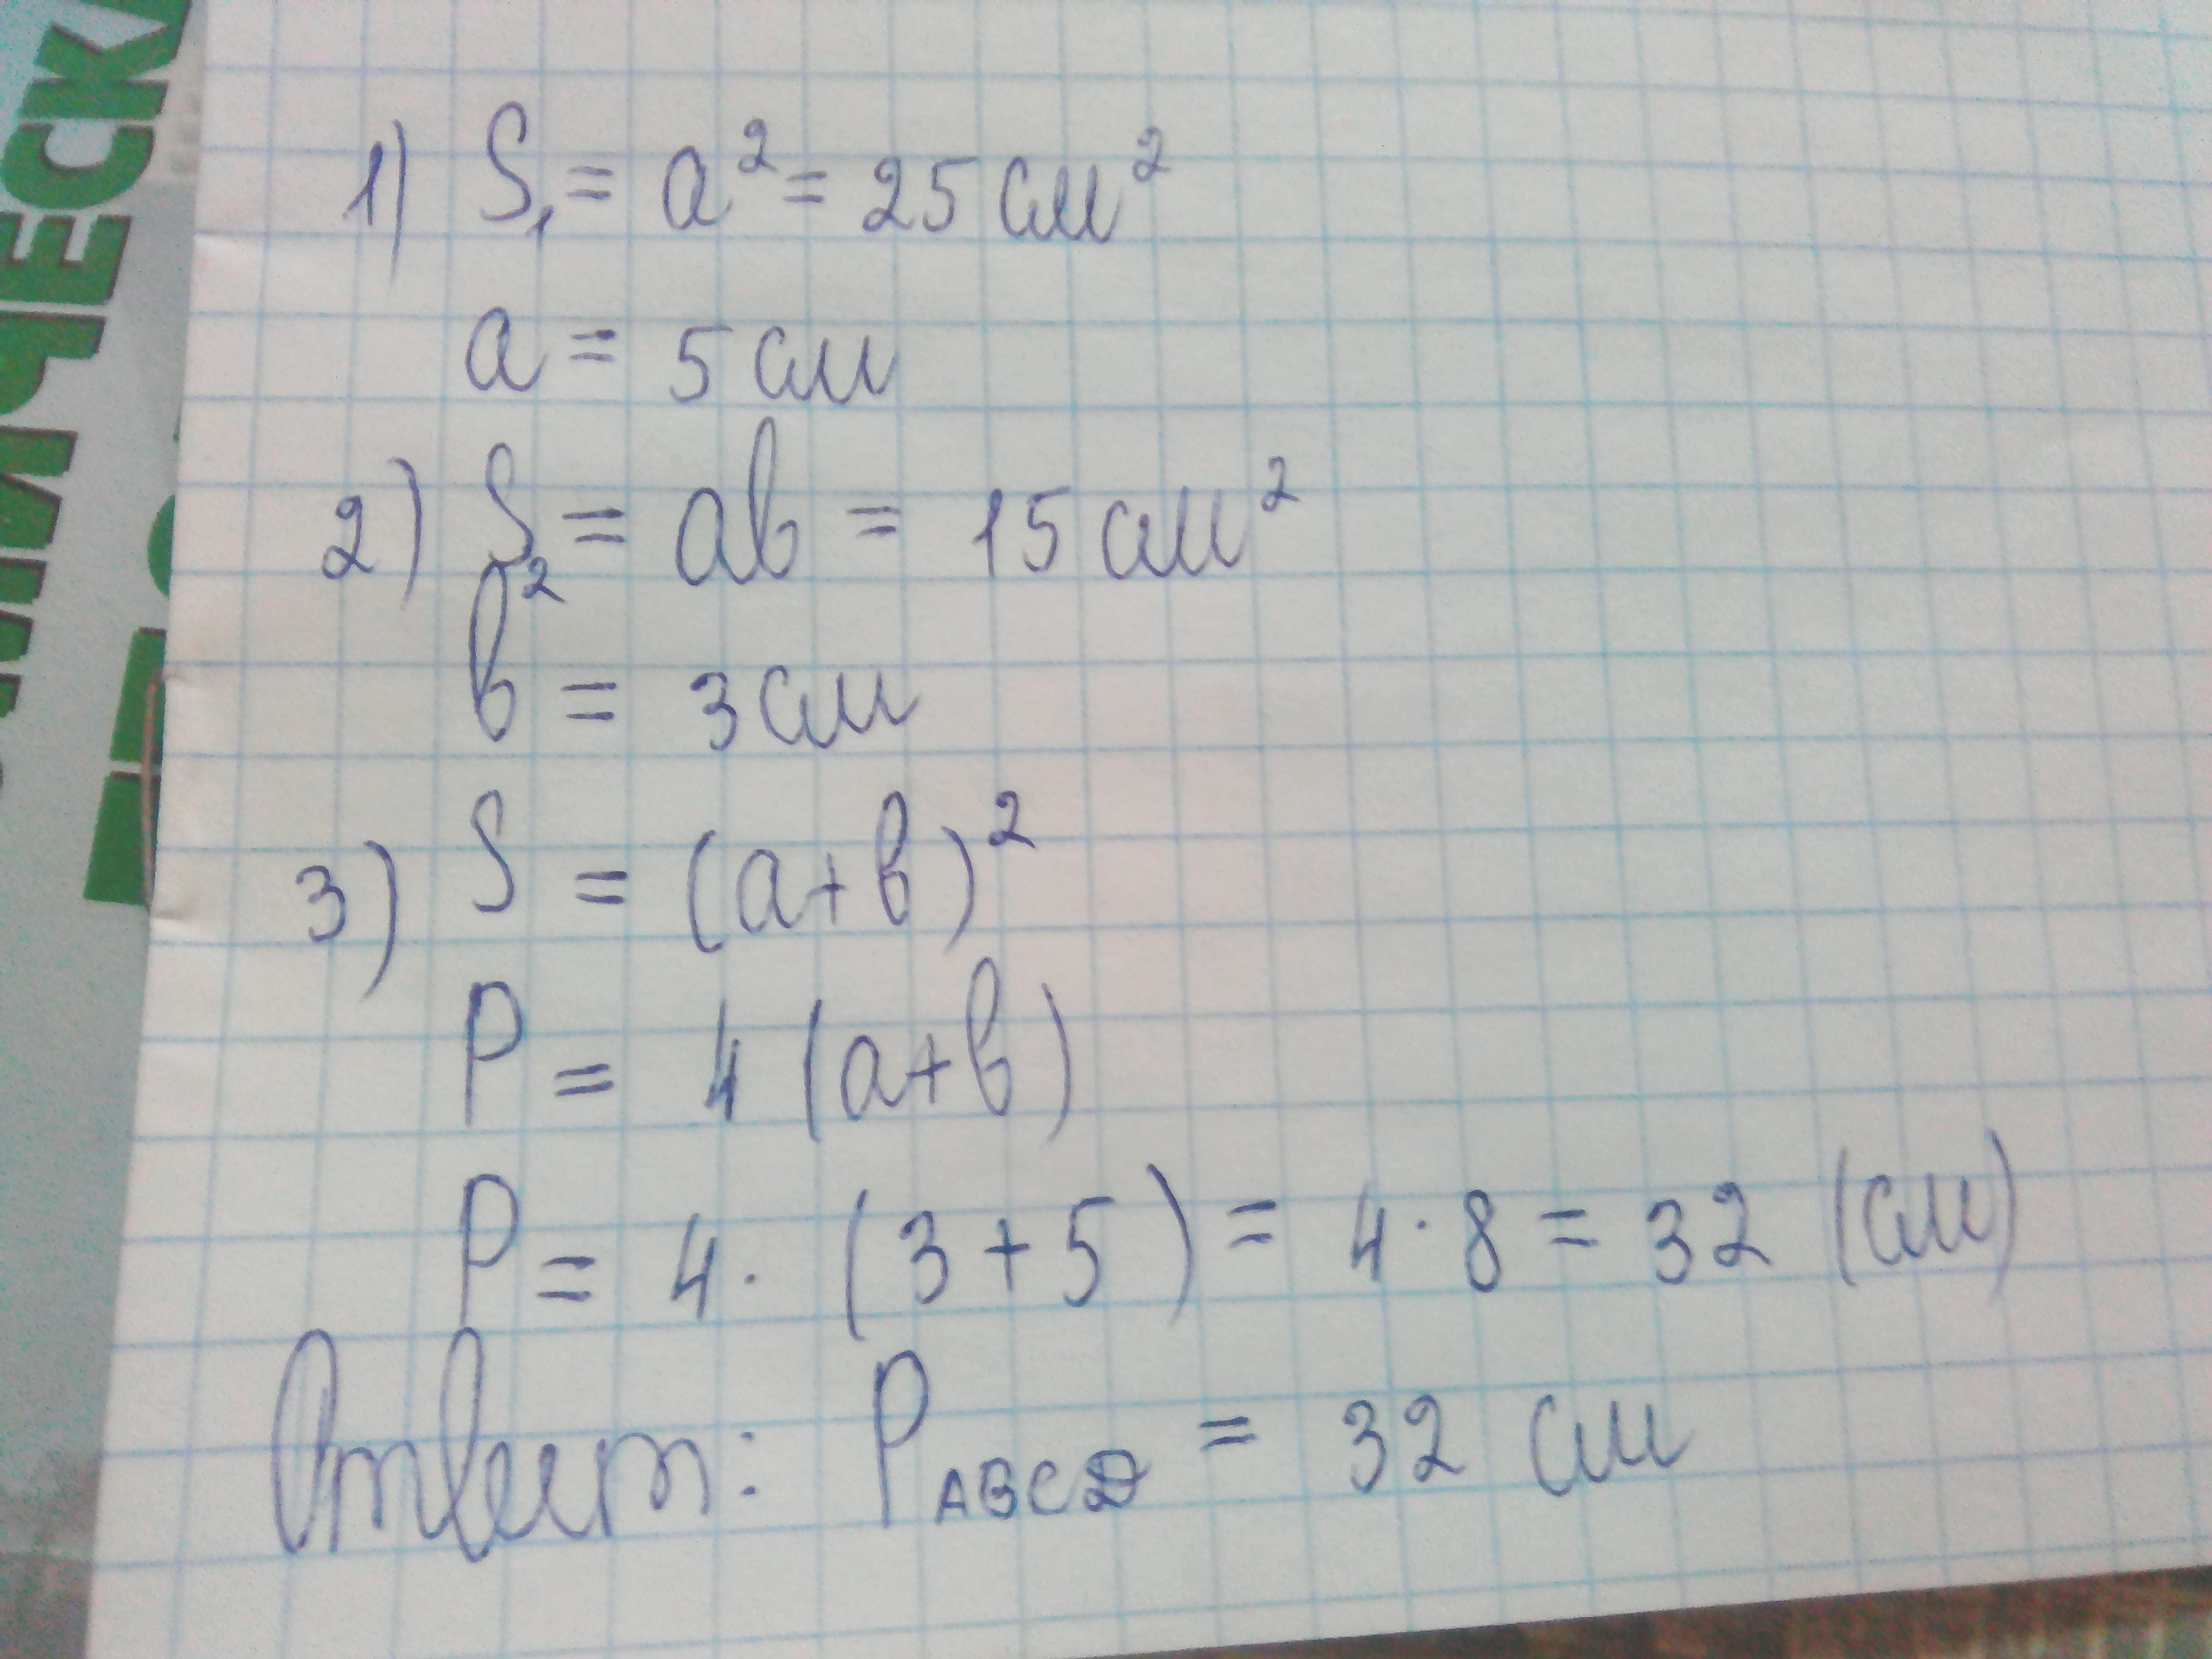 1) S₁ = a² = 25 см²
a = 5 см
2) S₂ = ab = 15 см²
b = 3 см
3) S = (a+b)²
P = 4 (a+b)
P = 4 · (3 + 5) = 4 · 8 = 32 (см)
Ответ: P ABCD = 32 см